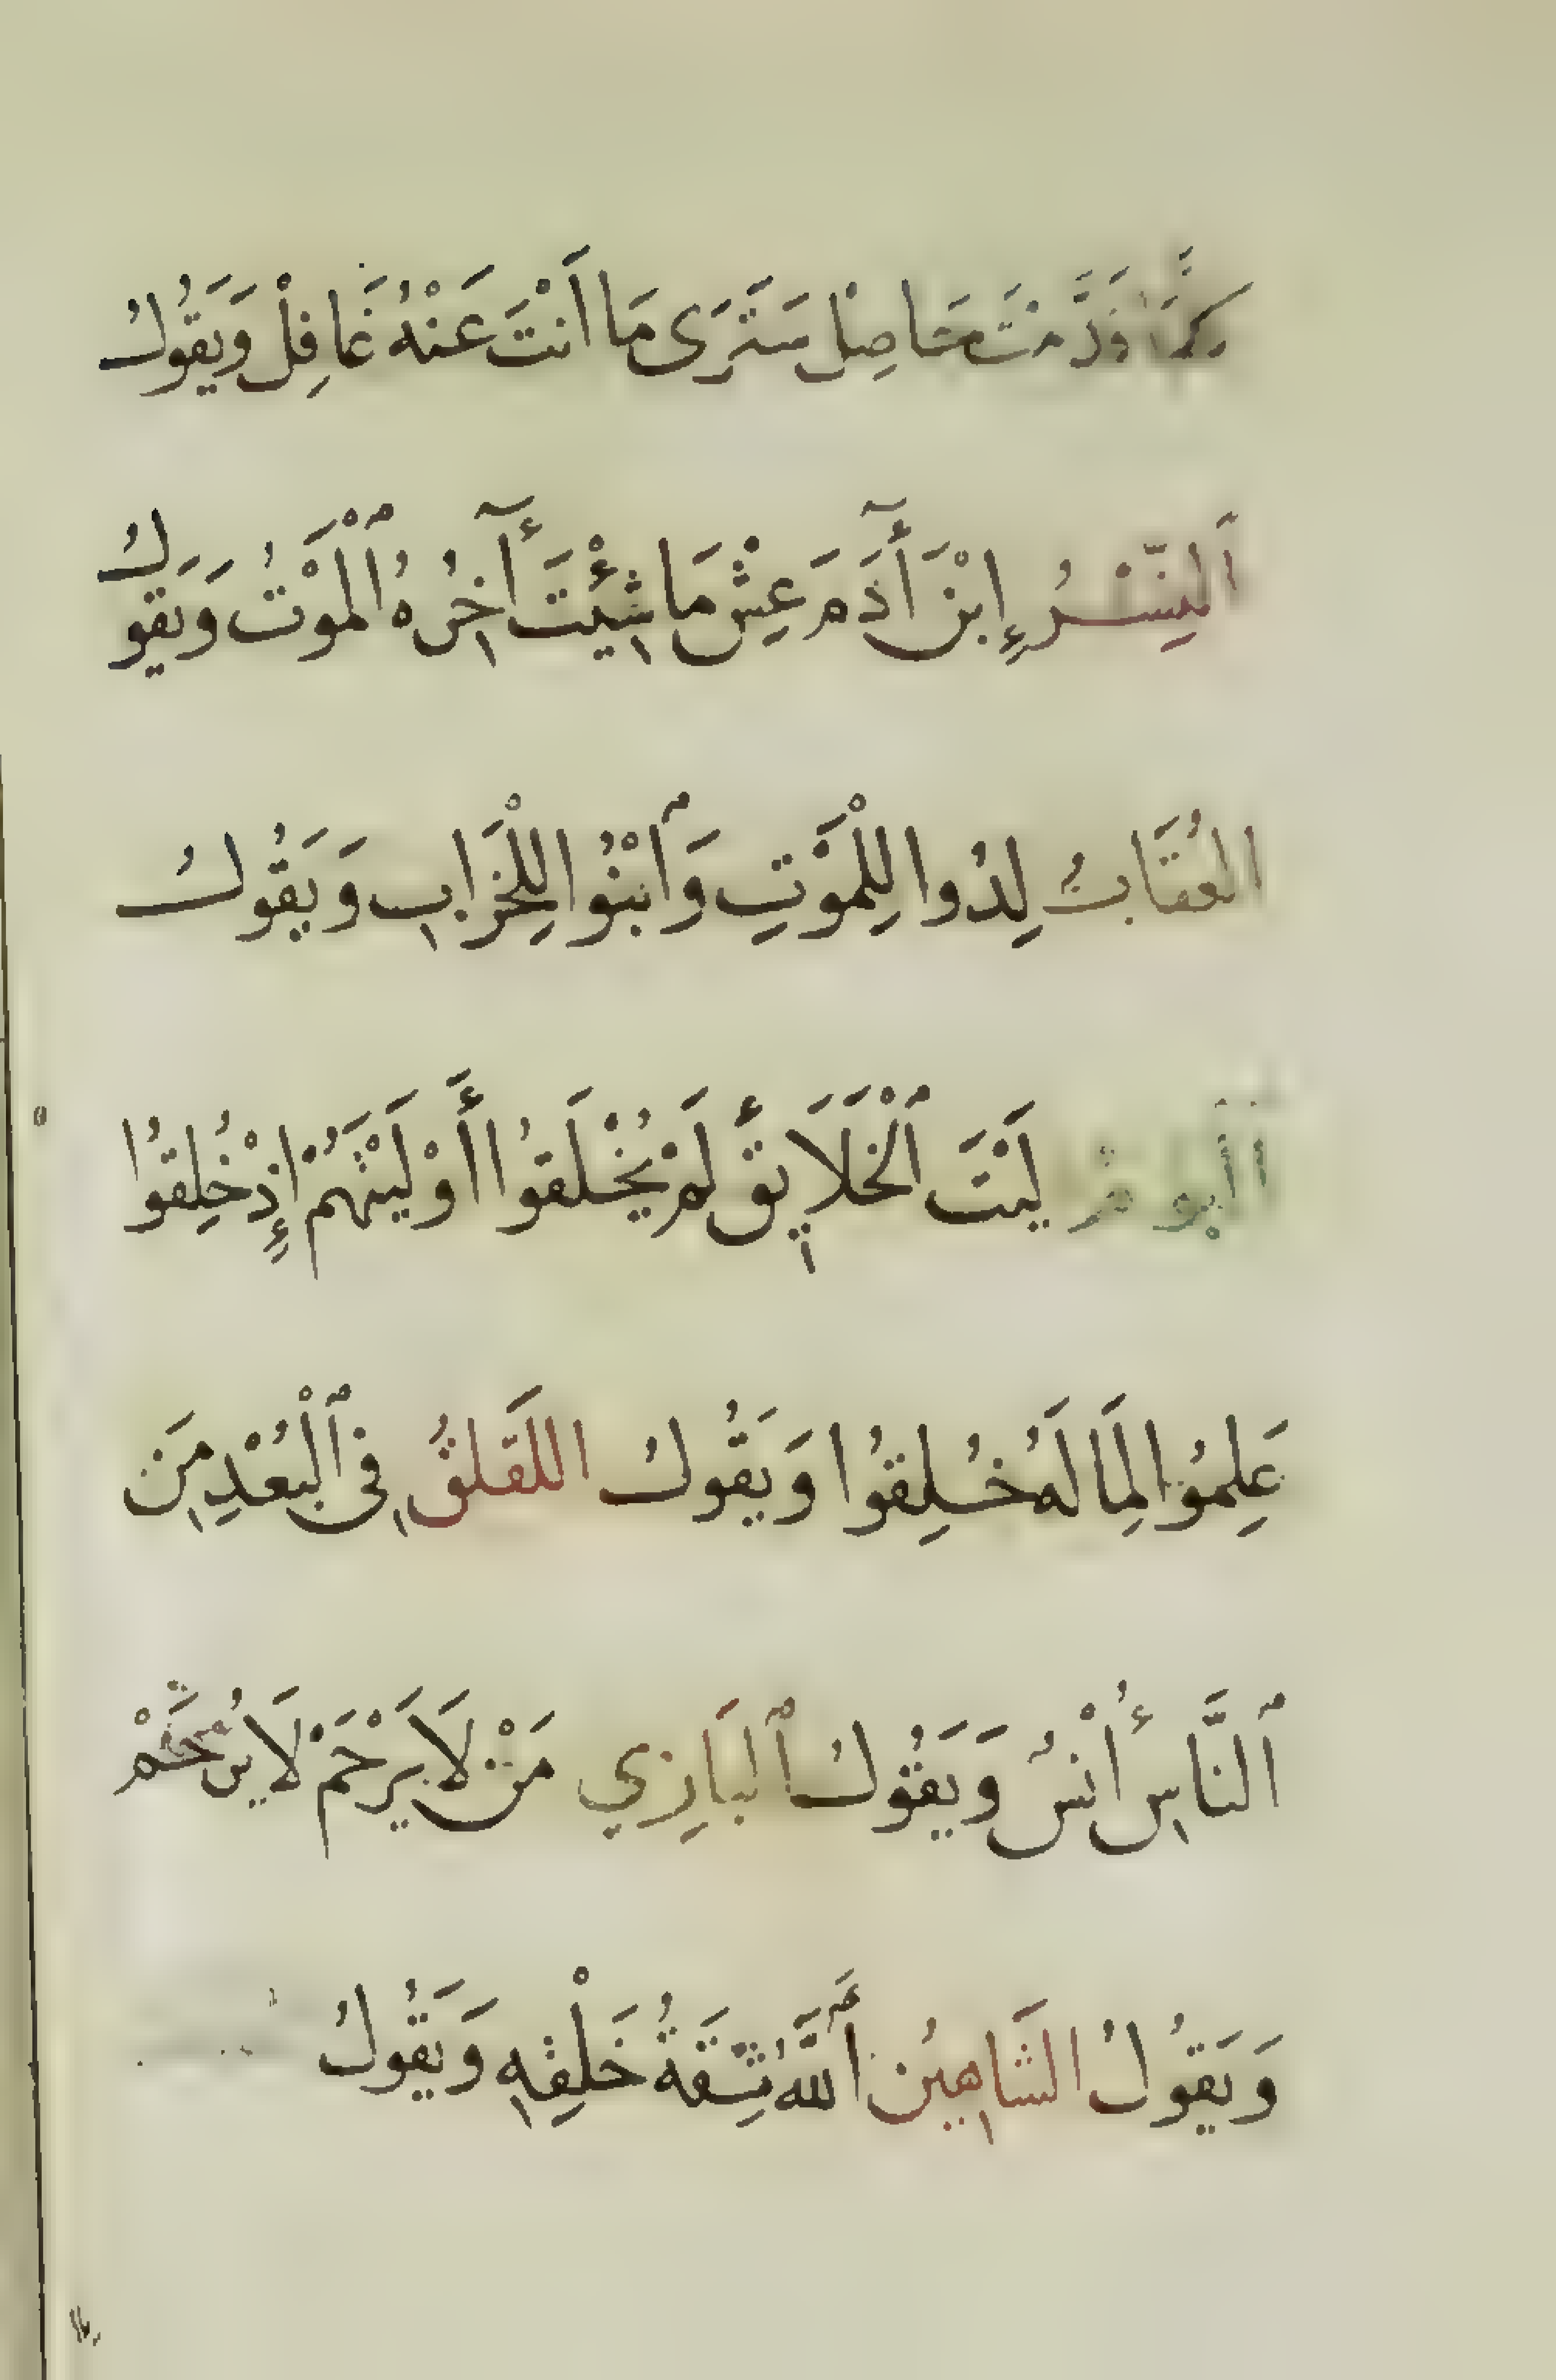 كَمَا قَدَّمْتَ حَاصِلْ سَتَرَى مَا أَنْتَ عَنْهُ غَافِلْ وَيَقُولُ
اَلنِّسْرُ إِبْنَ أٓدَمَ عِشْ مَا شِئْتَ أٓخِرُهُ ٱلْمَوْتُ وَيَقُولُ
العُقَابُ لِدُوا لِلْمَوْتِ وَٱبْنُوا لِلْخَرَابِ وَيَقُولُ
اَلْبُومُ لَيْتَ ٱلْخَلَائِقَ لَمْ يُخْلَقُوا أَوْ لَيْتَهُمْ إِذْ خُلِقُوا
عَلِمُوا لِمَا لَهُ خُلِقُوا وَيَقُولُ اللَقْلَقُ فِي ٱلْبُعْدِ مِنَ
ٱلنَّاسِ أُنْسٌ وَيَقُولُ ٱلبَازِي مَنْ لَا يَرْحَمْ لَا يُرْحَمْ
وَيَقُولُ الشَاهِينُ أَللَّهُ ثِقَةُ خَلْقِهِ وَيَقُولُ